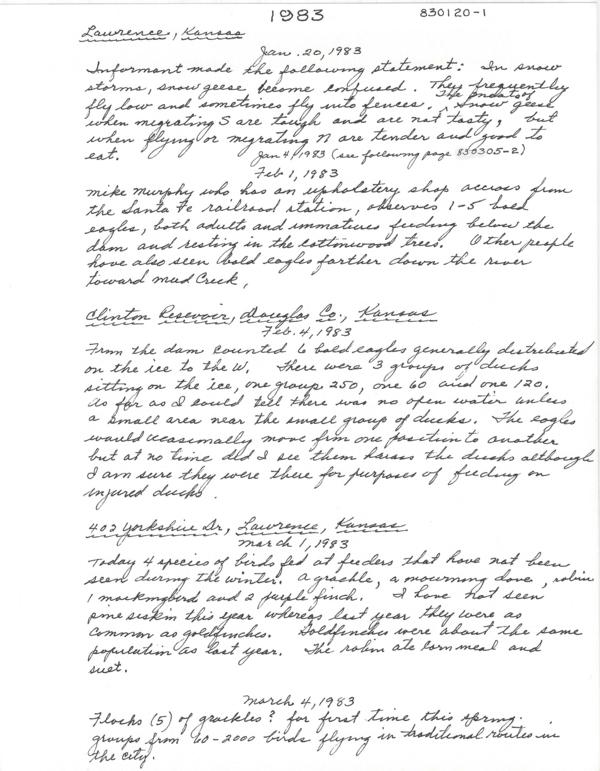 1983
830120-1
Lawrence, Kansas
Jan. 20, 1983
Informant made the following statement: In snow
storms, snow geese become confused. They frequently
fly low and sometimes fly into fences. The breasts of snow geese
when migrating S are tough and are not tasty, but
when flying or migrating N are tender and good to
eat. Jan 4, 1983 (see following page 830305-2)
Feb 1, 1983
Mike Murphy who has an upholstery shop accross from
the Santa Fe railroad station, observes 1-5 bald
eagles, both adults and immatures feeding below the
dam and resting in the cottonwood trees. Other people
have also seen bald eagles farther down the river
toward Mud Creek,
Clinton Resevoir, Douglas Co., Kansas
Feb. 4, 1983
From the dam counted 6 bald eagles generally distributed
on the ice to the W. There were 3 groups of ducks
sitting on the ice, one group 250, one 60 and one 120.
As far as I could tell there was no open water unless
a small area near the small group of ducks. The eagles
would occasionally move from one position to another
but at no time did I see them harass the ducks although
I am sure they were there for purposes of feeding on
injured ducks.
402 Yorkshire Dr, Lawrence, Kansas
March 1, 1983
Today 4 species of birds fed at feeders that have not been
seen during the winter. A grackle, a mourning dove, robin
1 mockingbird and 2 purple finch. I have not seen
pine siskin this year whereas last year they were as
common as goldfinches. Goldfinches were about the same
population as last year. The robin ate corn meal and
suet.
March 4, 1983
Flocks (5) of grackles? for first time this spring.
groups from 60-2000 birds flying in traditional routes in
the city.